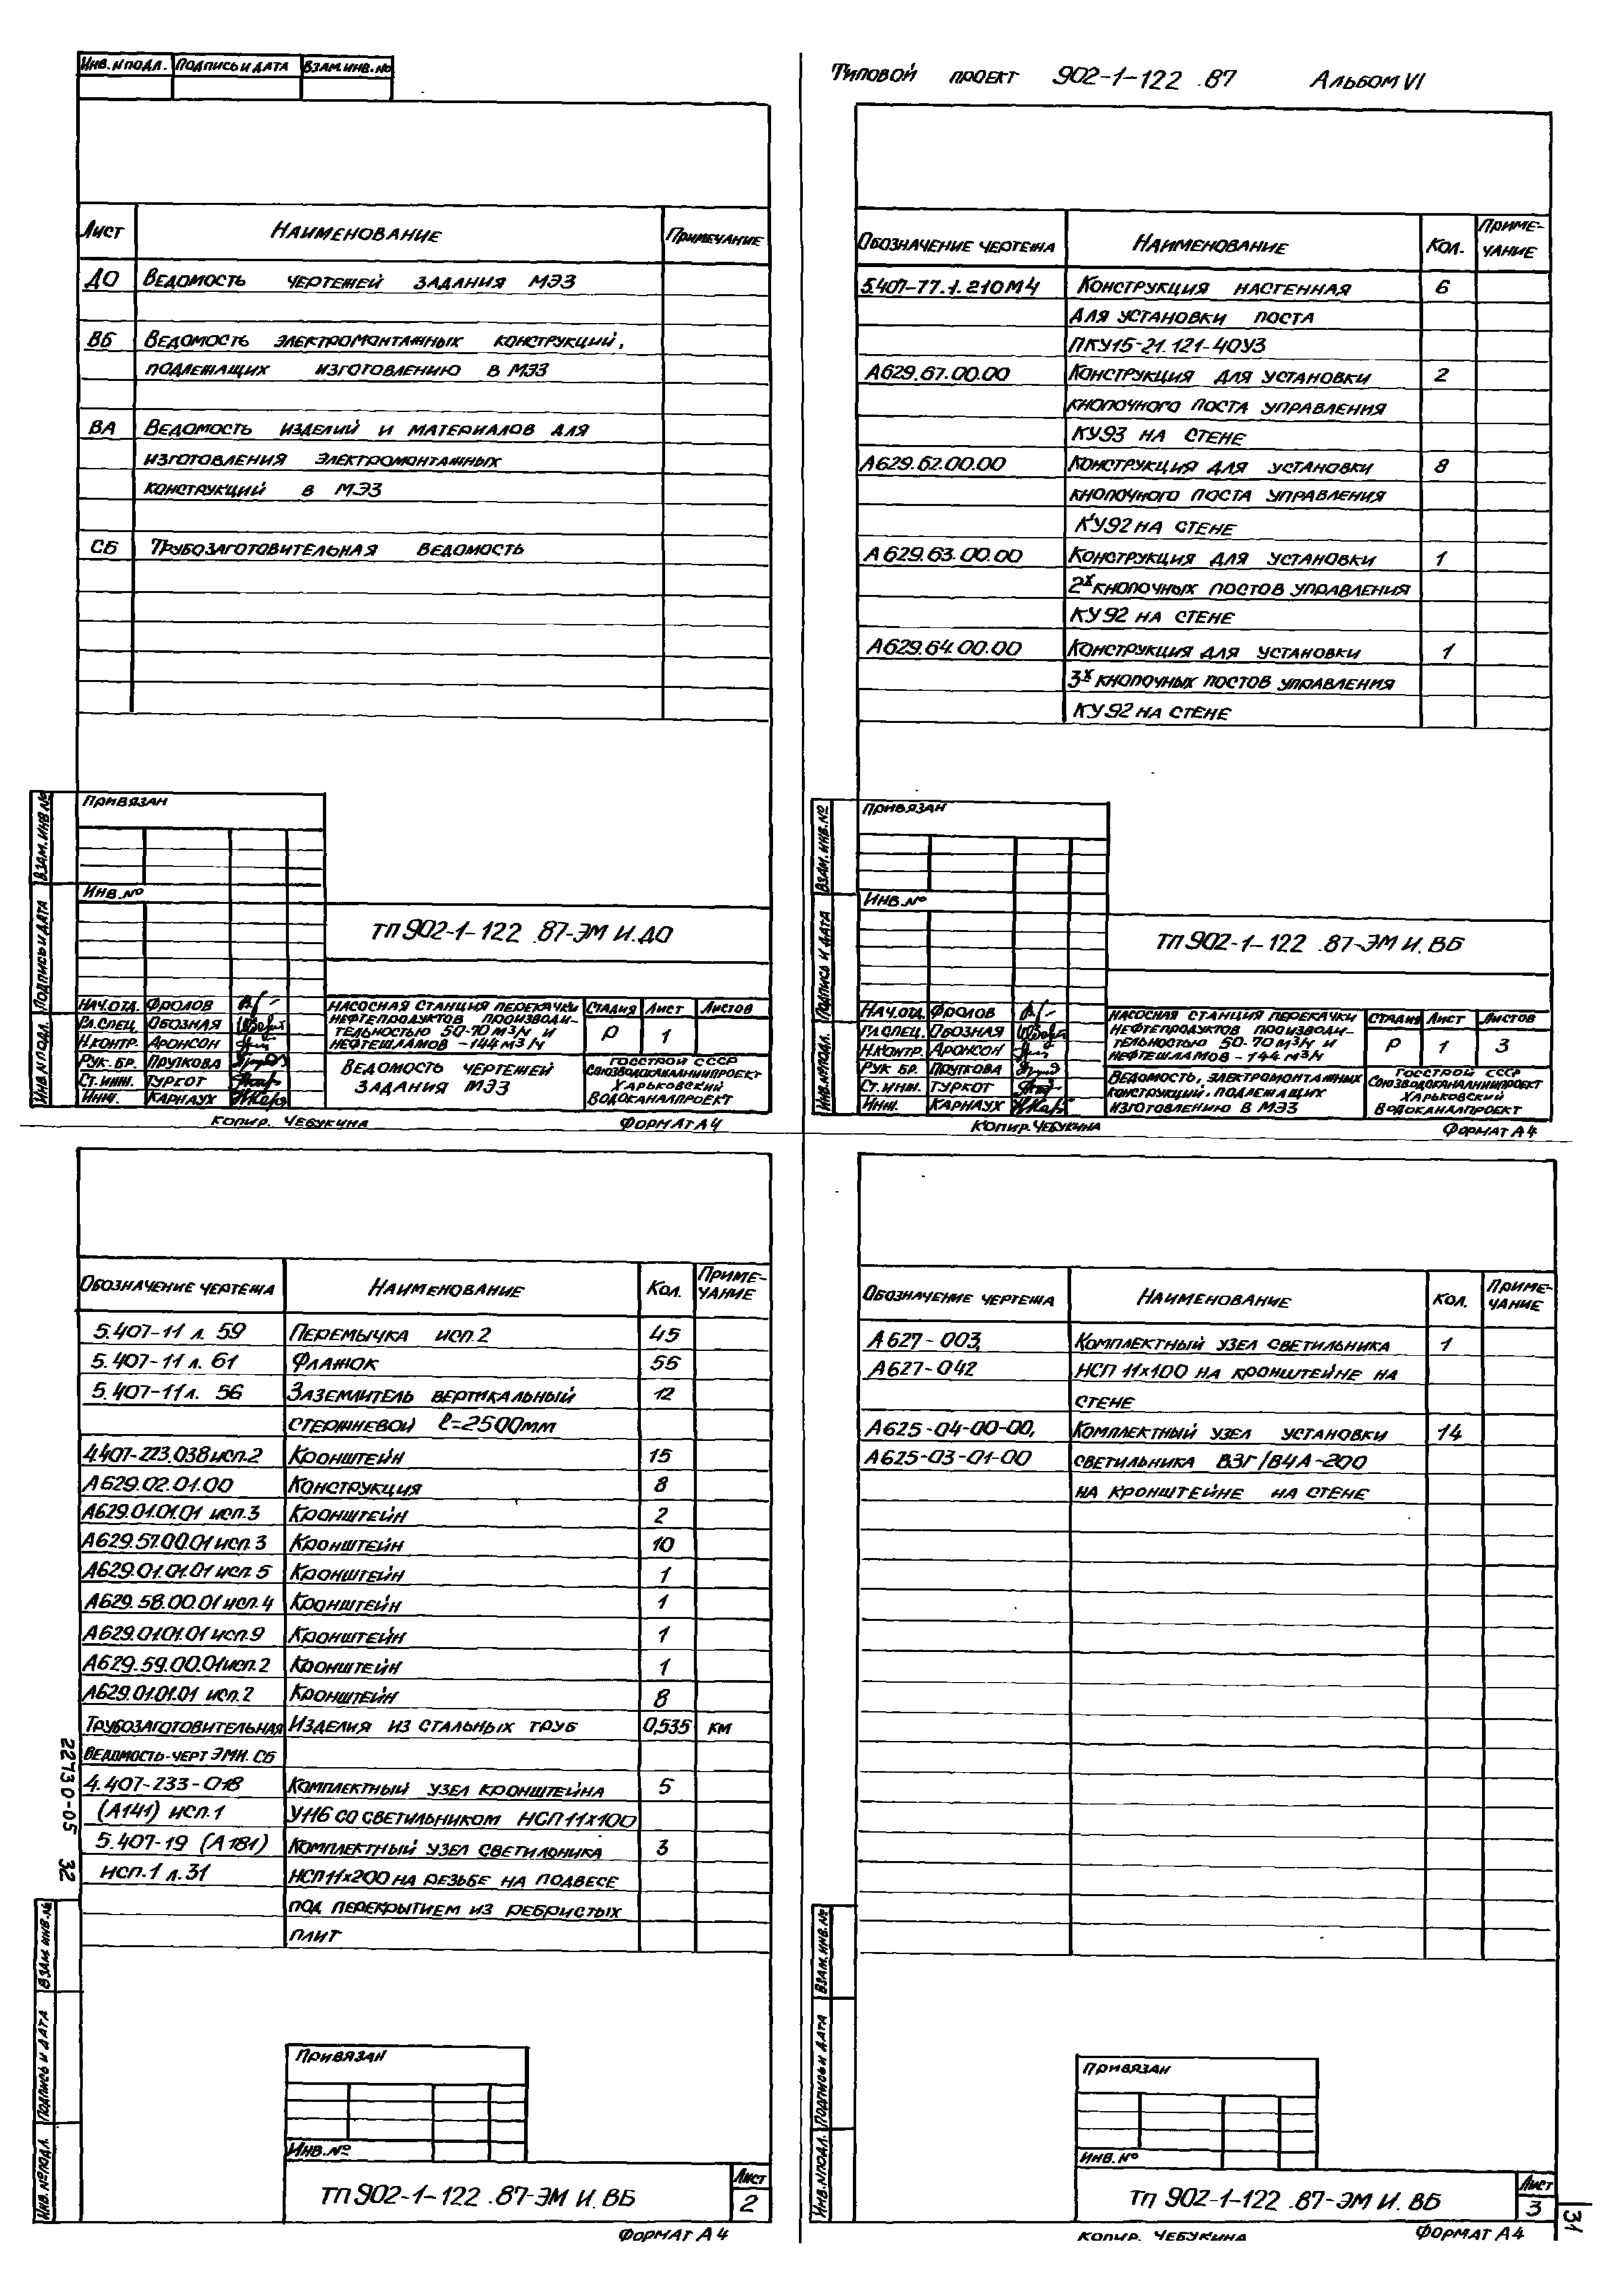 Инв.№подл. Подпись и дата Взам.инв.№
Лист Наименование Примечание
ДО Ведомость чертежей задания МЭЗ
ВБ Ведомость электромонтажных конструкций,
подлежащих изготовлению в МЭЗ
ВА Ведомость изделий и материалов для
изготовления электромонтажных
конструкций в МЭЗ
СБ Трубозаготовительная ведомость
Привязан
Инв.№
ТП 902-1-122 .87-ЭМ И.ДО
Нач.отд. Фролов
Гл.спец. Обозная
Н.контр. Аронсон
Рук. бр. Пруткова
Ст.инж. Туркот
Инж. Карнаух
Насосная станция перекачки
нефтепродуктов производи-
тельностью 50-70 м3/ч и
нефтешламов -144 м3/ч
Стадия Лист Листов
Р 1
Ведомость чертежей
задания МЭЗ
Госстрой СССР
Союзводоканалниипроект
Харьковский
Водоканалпроект
Взам.инв.№
Подпись и дата
Инв.№подл.
Копир. Чебукина Формат А4
Типовой проект 902-1-122 .87 Альбом VI
Обозначение чертежа Наименование Кол. Приме-
чание
5.407-77.1.210МЧ Конструкция настенная 6
для установки поста
ПКУ15-21.121-40У3
А629.67.00.00 Конструкция для установки 2
кнопочного поста управления
КУ93 на стене
А629.62.00.00 Конструкция для установки 8
кнопочного поста управления
КУ92 на стене
А629.63.00.00 Конструкция для установки 1
2х кнопочных постов управления
КУ92 на стене
А629.64.00.00 Конструкция для установки 1
3х кнопочных постов управления
КУ92 на стене
Привязан
Инв.№
ТП 902-1-122 .87-ЭМ И.ВБ
Нач.отд. Фролов
Гл.спец. Обозная
Н.контр. Аронсон
Рук бр. Пруткова
Ст.инж. Туркот
Инж. Карнаух
Насосная станция перекачки
нефтепродуктов производи-
тельностью 50-70 м3/ч и
нефтешламов -144 м3/ч
Стадия Лист Листов
Р 1 3
Ведомость, электромонтажных
конструкций, подлежащих
изготовлению в МЭЗ
Госстрой СССР
Союзводоканалниипроект
Харьковский
Водоканалпроект
Взам.инв.№
Подпись и дата
Инв.№подл.
Копир. Чебукина Формат А4
Обозначение чертежа Наименование Кол. Приме-
чание
5.407-11 л. 59 Перемычка исп.2 45
5.407-11 л. 61 Флажок 55
5.407-11 л. 56 Заземлитель вертикальный 12
стержневой ℓ=2500мм
4.407-223.038 исп.2 Кронштейн 15
А629.02.01.00 Конструкция 8
А629.01.01.01 исп.3 Кронштейн 2
А629.57.00.01 исп.3 Кронштейн 10
А629.01.01.01 исп.5 Кронштейн 1
А629.58.00.01 исп.4 Кронштейн 1
А629.01.01.01 исп.9 Кронштейн 1
А629.59.00.01 исп.2 Кронштейн 1
А629.01.01.01 исп.2 Кронштейн 8
Трубозаготовительная Изделия из стальных труб 0,535 км
ведомость-черт ЭМИ. СБ
4.407-233-018 Комплектный узел кронштейна 5
(А141) исп.1 У116 со светильником НСП 11х100
5.407-19 (А181) Комплектный узел светильника 3
исп.1 л.31 НСП11х200 на резьбе на подвесе
под перекрытием из ребристых
плит
22730-05 32
Взам инв.№
Подпись и дата
Инв.№подл.
Привязан
Инв.№
ТП 902-1-122 .87-ЭМ И. ВБ
Лист
2
Формат А4
Обозначение чертежа Наименование Кол. Приме-
чание
А627-003, Комплектный узел светильника 1
А627-042 НСП 11х100 на кронштейне на
стене
А625-04-00-00, Комплектный узел установки 14
А625-03-01-00 светильника ВЗГ/В4А-200
на кронштейне на стене
Взам.инв.№
Подпись и дата
Инв.№подл.
Привязан
Инв.№
ТП 902-1-122 .87-ЭМ И. ВБ
Лист
3
31
Копир. Чебукина Формат А4